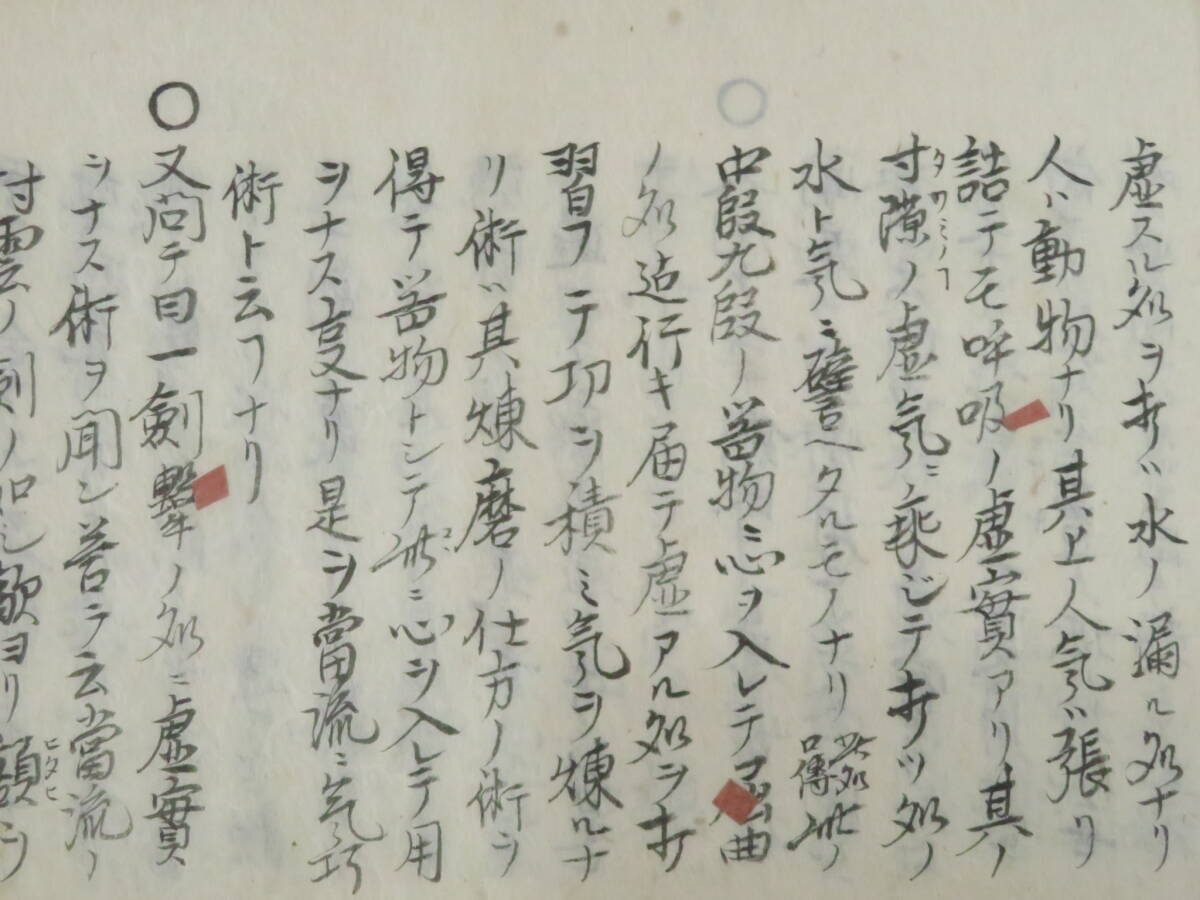 虚スル処ヲ打バ水ノ漏ル処ナリ
人ハ動物ナリ其上ノ人気ガ張リ
詰テモ呼吸ノ虚實アリ其ノ
寸隙ノ虚気ニ乗ジテ打ツ処ノ
水ト気ニ譬ヘタルモノナリ此処口傳
中段九段ノ器物ニ心ヲ入レテ曲
ノ処迠行キ届テ虚アル処ヲ打
習フテ功ヲ積ミ気ヲ煉ルナ
リ術ハ其煉磨ノ仕方ノ術ヲ
得テ器物トシテ此ニ心ヲ入レテ用
ヲナス叓ナリ是ヲ當流ニ気巧
術ト云フナリ
〇又問テ曰一劍撃ノ処ニ虚實
ヲナス術ヲ聞ン答テ云當流ノ
劍ノ如ヨリ額ヲ
ヒタヒ